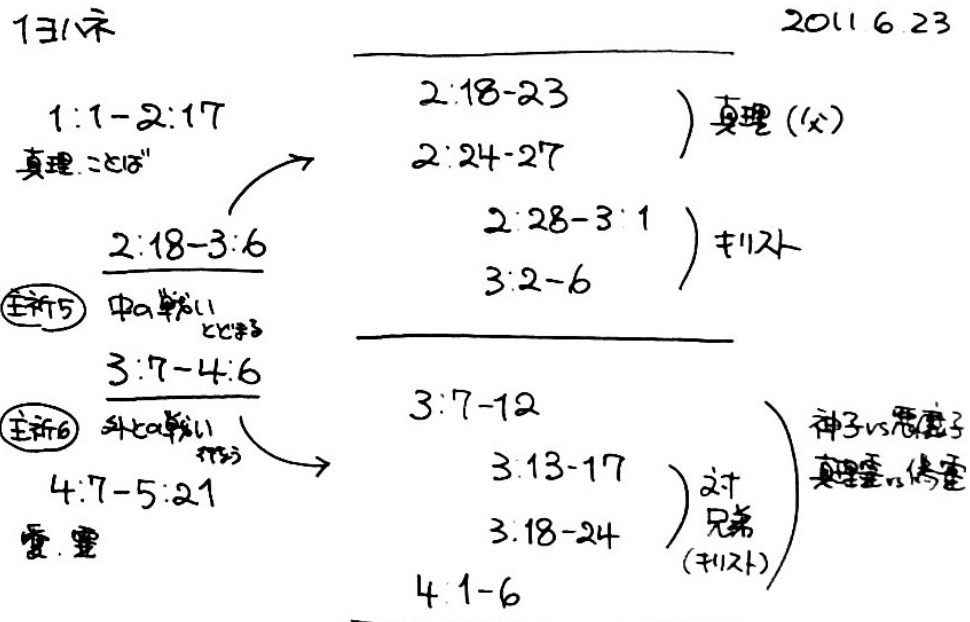 1ヨハネ
2011.6.23
1:1-2:17
真理.ことば
2:18-3:6
主祈5 中の戦い
とどまる
3:7-4:6
主祈6 外との戦い
行なう
4:7-5:21
愛.霊
2:18-23
2:24-27
真理(父)
2:28-3:1
3:2-6
キリスト
3:7-12
3:13-17
3:18-24
対
兄弟
(キリスト)
4:1-6
神子vs悪魔子
真理霊vs偽霊